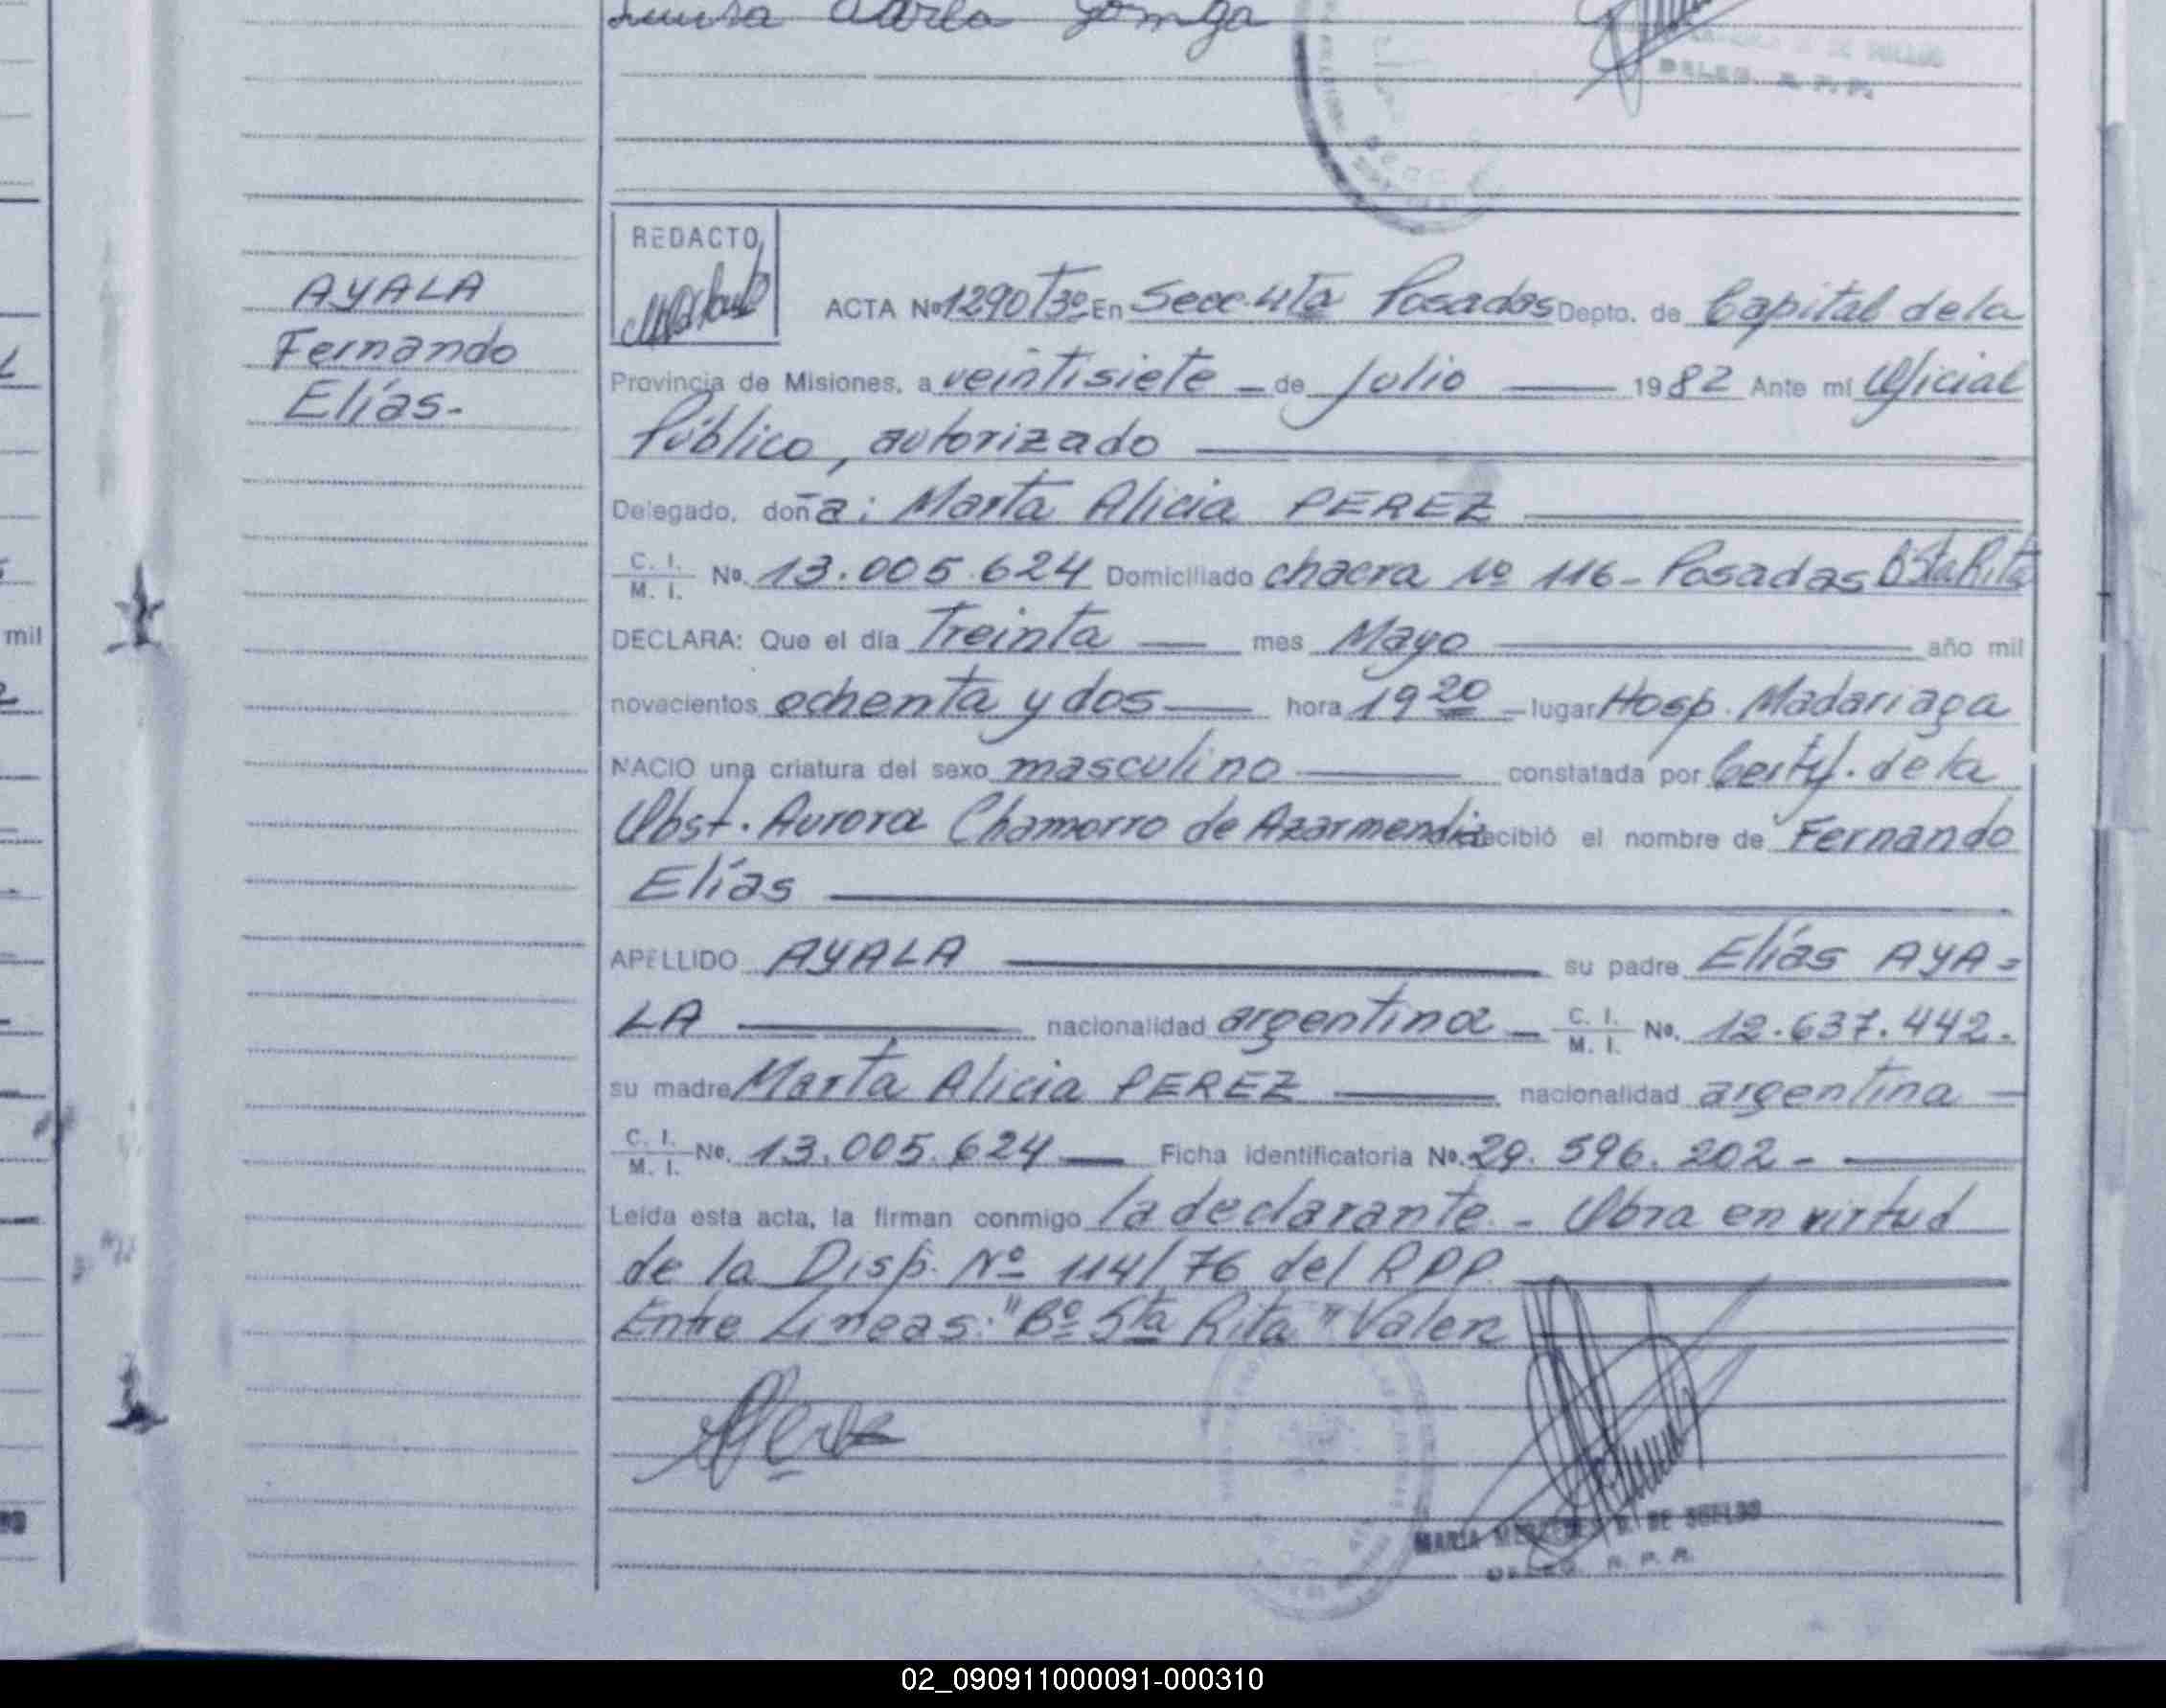 AYALA
Fernando
Elías.-
mil
REDACTO
ACTA Nº 1290 Tº 3º En Secc. 4ta Posadas Depto. de Capital de la
Provincia de Misiones, a veintisiete - de Julio — 1982 Ante mí Oficial
Público, autorizado
Delegado, doña: Marta Alicia PEREZ
C. I. / M. I. Nº. 13.005.624 Domiciliado chacra Nº 116 - Posadas Bº Sta Rita
DECLARA: Que el día Treinta — mes Mayo — año mil
novecientos ochenta y dos — hora 19 20 - lugar Hosp. Madariaga
NACIO una criatura del sexo masculino — constatada por Certif. de la
Obst. Aurora Chamorro de Azarmendia recibió el nombre de Fernando
Elías
APELLIDO AYALA — su padre Elías AYA=
LA — nacionalidad argentina - C. I. / M. I. Nº. 12.637.442.
su madre Marta Alicia PEREZ — nacionalidad argentina -
C. I. / M. I. Nº. 13.005.624 — Ficha identificatoria Nº. 29.596.202 -
Leída esta acta, la firman conmigo la declarante. - Obra en virtud
de la Disp. Nº 114/76 del RPP.
Entre Líneas: "Bº Sta Rita" Valen
DE SUELDO
DELEG. R. P. P.
02_090911000091-000310